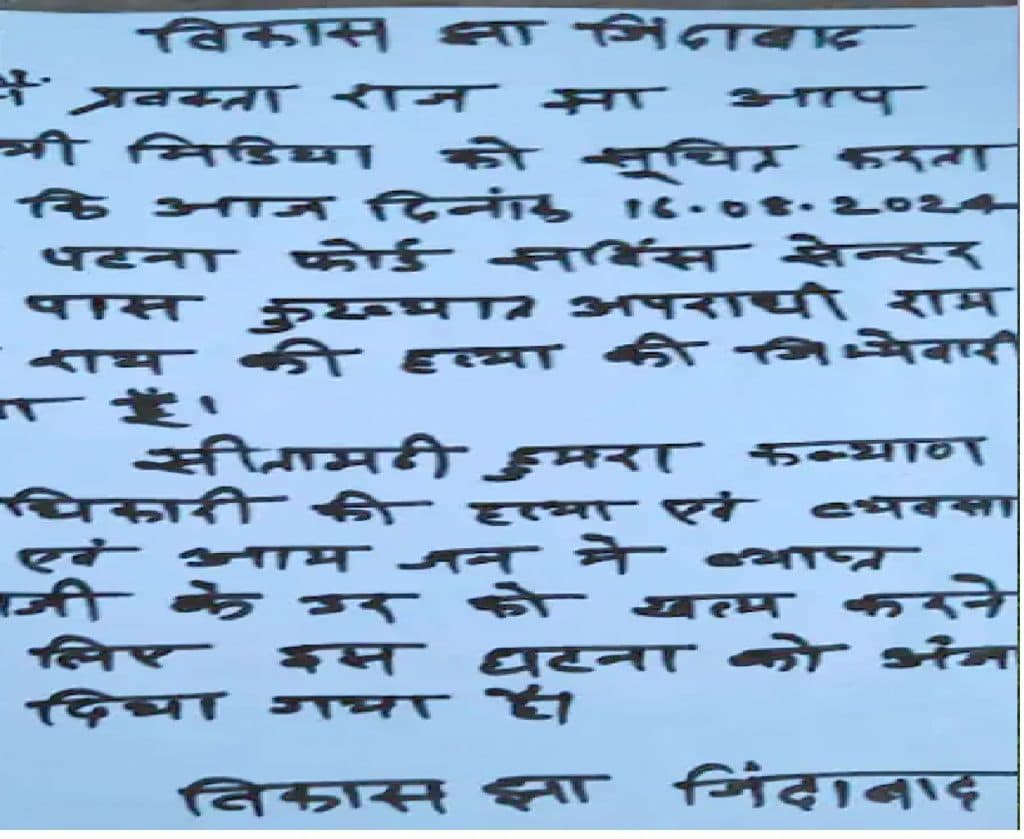 विकास झा जिंदाबाद
मैं प्रवक्ता राज झा आप
भी मिडिया को सूचित करता
कि आज दिनांक 16.08.2024
पटना फोर्ड सर्विस सेन्टर
पास कुख्यात अपराधी राम
राय की हत्या की जिम्मेवारी
ता हूँ।
सीतामढी डुमरा कल्याण
धिकारी की हत्या एवं व्यवसा
एवं आम जन मे व्याप्त
जी के डर को खत्म करने
लिए इस घटना को अंजा
दिया गया है।
विकास झा जिंदाबाद